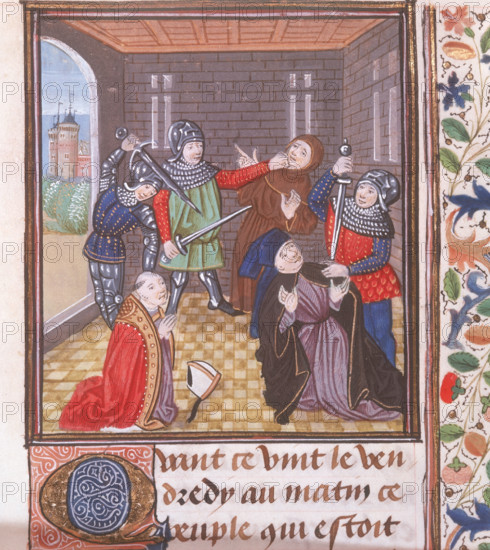 PHOTO12
Quant ce vint le ven
dredy au matin ce
peuple qui estoit